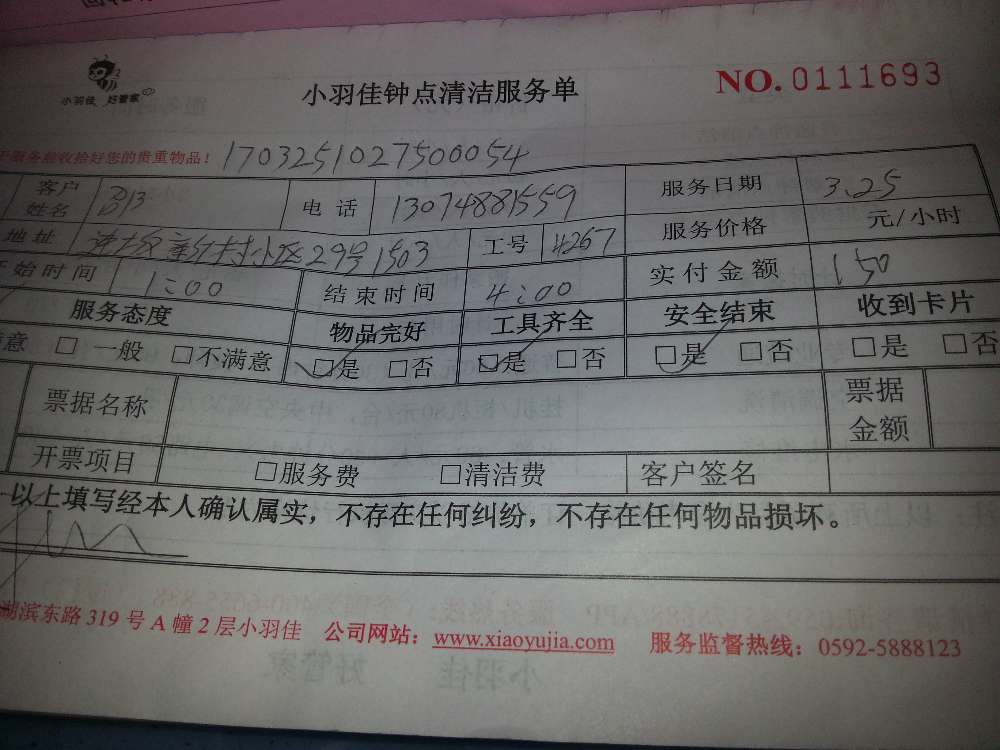 小羽佳 好管家
小羽佳钟点清洁服务单
NO. 0111693
服务前收拾好您的贵重物品！ 1703251027500054
客户姓名 电话 13074881559 服务日期 3.25
地址 小区29号1503 工号 4267 服务价格 元/小时
开始时间 1:00 结束时间 4:00 实付金额 150
服务态度 物品完好 工具齐全 安全结束 收到卡片
意 □一般 □不满意 □是 □否 □是 □否 □是 □否 □是 □否
票据名称 票据金额
开票项目 □服务费 □清洁费 客户签名
以上填写经本人确认属实，不存在任何纠纷，不存在任何物品损坏。
湖滨东路 319 号 A 幢 2 层小羽佳 公司网站：www.xiaoyujia.com 服务监督热线：0592-5888123